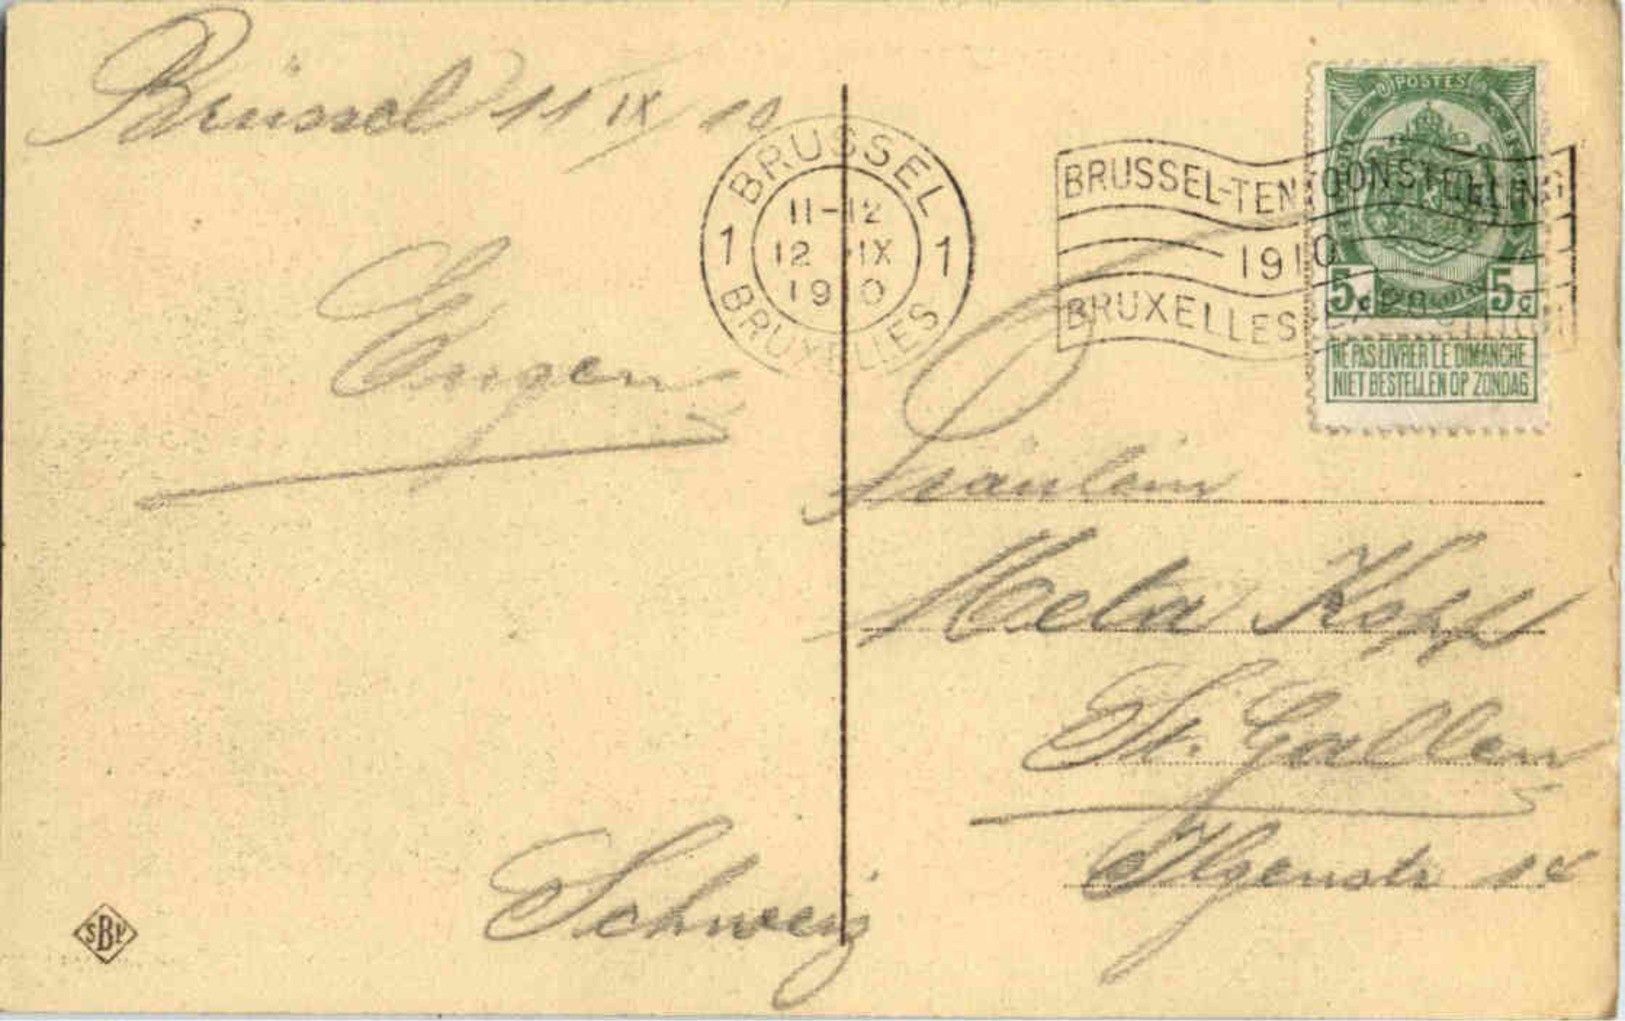 Brüssel 11 IX 10
Eugen
BRUSSEL
11-12
1 12 IX 1
1910
BRUXELLES
BRUSSEL-TENTOONSTELLING
1910
BRUXELLES
POSTES
5c 5c
NE PAS LIVRER LE DIMANCHE
NIET BESTELLEN OP ZONDAG
Fräulein
Meta Kopp
St. Gallen
Ilgenstr 14
Schweiz
SBP